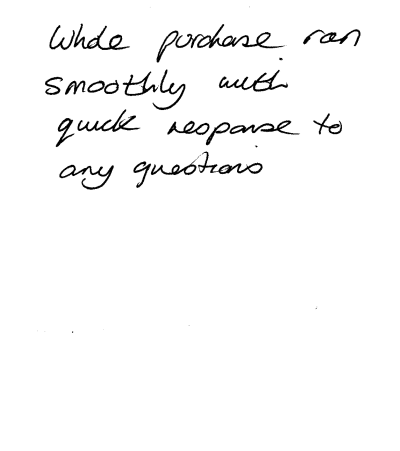 Whole purchase ran
smoothly with
quick response to
any questions